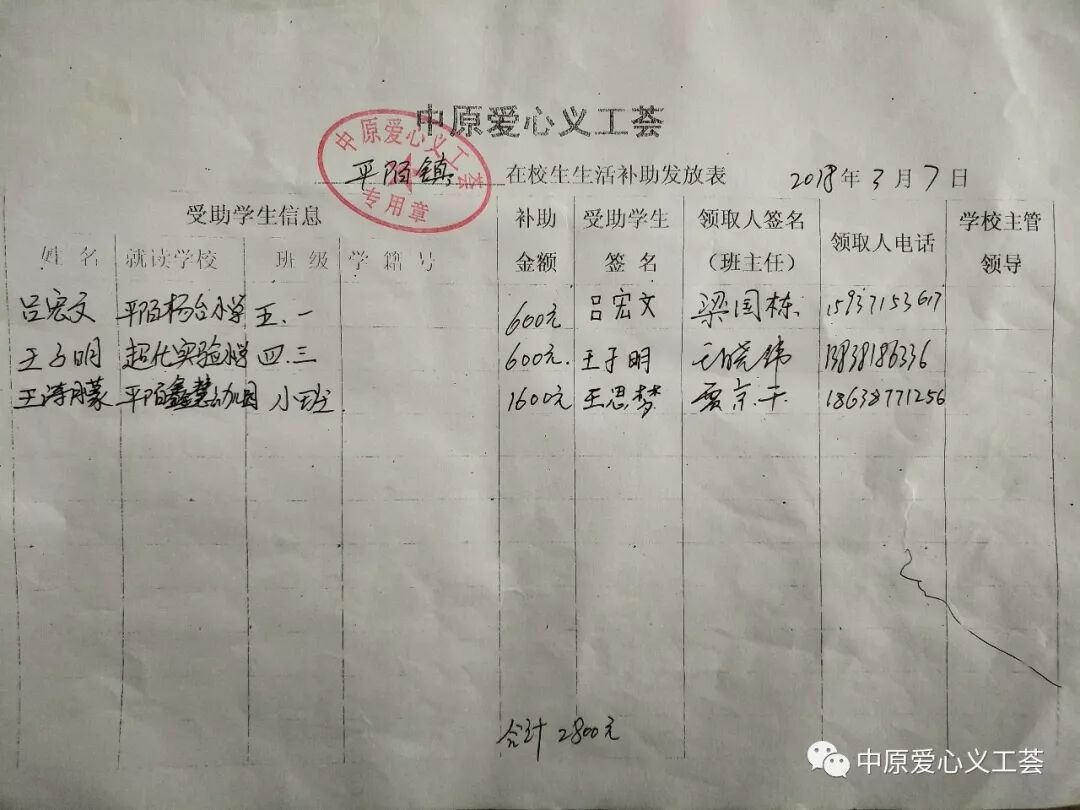 中原爱心义工荟
中原爱心义工荟
专用章
平陌镇 在校生生活补助发放表 2018年3月7日
受助学生信息 补助金额 受助学生签名 领取人签名（班主任） 领取人电话 学校主管领导
姓名 就读学校 班级 学籍号
吕宏文 平陌杨台小学 五.一 600元 吕宏文 梁国栋 15937153617
王子明 超化实验小学 四.三 600元. 王子明 王晓伟 13838186336
平陌鑫慧幼园 小班 1600元 王思梦 贾京干 18638771256
合计 2800元
中原爱心义工荟